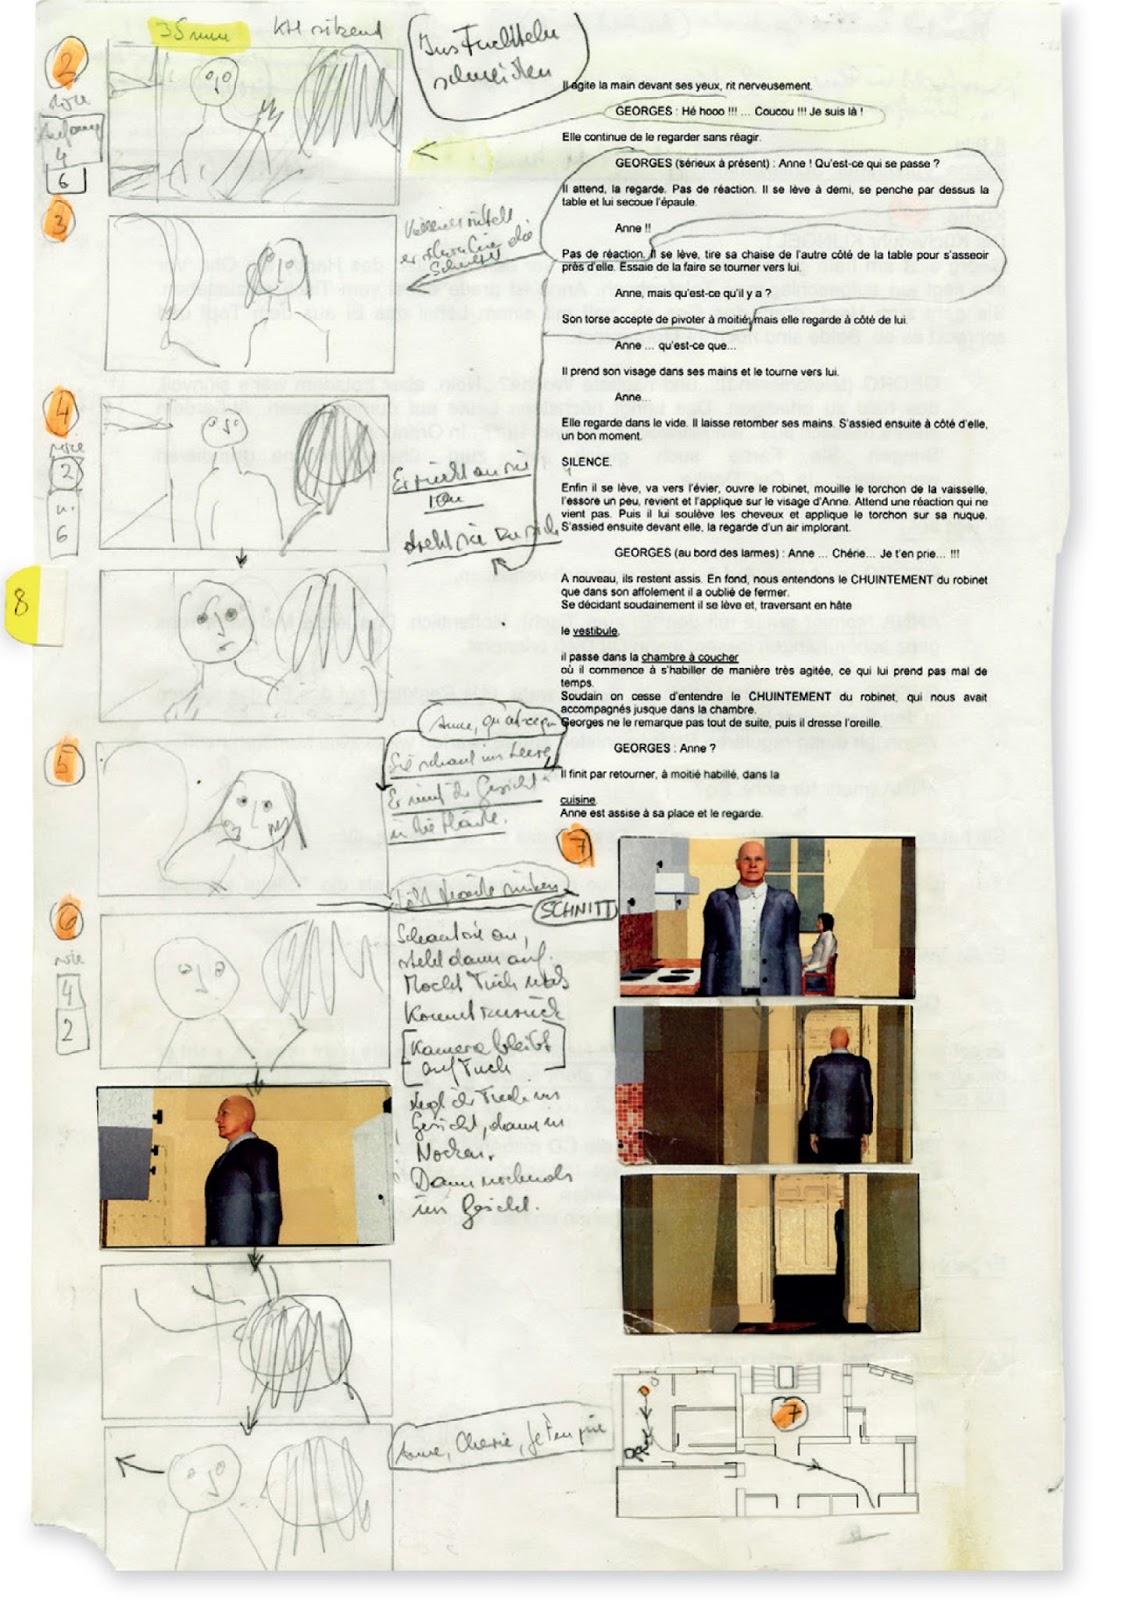 35mm KH sitzend
Ins Fuchteln
schneiden
2
wie
Anfang
4
6
3
4
wie
2
u.
6
8
5
6
wie
4
2
er
die
Schulter
Er rückt an sie
ran
dreht sie zu sich
Anne, qu'est-ce qu
Sie schaut ins Leere
Er nimmt ihr Gesicht
in die Hände.
SCHNITT
Schaut sie an,
steht dann auf.
Macht Tuch nass
Kommt zurück
Kamera bleibt
auf Tuch
legt ihr Tuch ins
Gesicht, dann in
Nacken.
Dann nochmals
ins Gesicht.
Anne, Cherie, je t'en prie
Il agite la main devant ses yeux, rit nerveusement.
GEORGES : Hé hooo !!! … Coucou !!! Je suis là !
Elle continue de le regarder sans réagir.
GEORGES (sérieux à présent) : Anne ! Qu'est-ce qui se passe ?
Il attend, la regarde. Pas de réaction. Il se lève à demi, se penche par dessus la
table et lui secoue l'épaule.
Anne !!
Pas de réaction. Il se lève, tire sa chaise de l'autre côté de la table pour s'asseoir
près d'elle. Essaie de la faire se tourner vers lui.
Anne, mais qu'est-ce qu'il y a ?
Son torse accepte de pivoter à moitié, mais elle regarde à côté de lui.
Anne … qu'est-ce que…
Il prend son visage dans ses mains et le tourne vers lui.
Anne…
Elle regarde dans le vide. Il laisse retomber ses mains. S'assied ensuite à côté d'elle,
un bon moment.
SILENCE.
Enfin il se lève, va vers l'évier, ouvre le robinet, mouille le torchon de la vaisselle,
l'essore un peu, revient et l'applique sur le visage d'Anne. Attend une réaction qui ne
vient pas. Puis il lui soulève les cheveux et applique le torchon sur sa nuque.
S'assied ensuite devant elle, la regarde d'un air implorant.
GEORGES (au bord des larmes) : Anne … Chérie… Je t'en prie… !!!
A nouveau, ils restent assis. En fond, nous entendons le CHUINTEMENT du robinet
que dans son affolement il a oublié de fermer.
Se décidant soudainement il se lève et, traversant en hâte
le vestibule,
il passe dans la chambre à coucher
où il commence à s'habiller de manière très agitée, ce qui lui prend pas mal de
temps.
Soudain on cesse d'entendre le CHUINTEMENT du robinet, qui nous avait
accompagnés jusque dans la chambre.
Georges ne le remarque pas tout de suite, puis il dresse l'oreille.
GEORGES : Anne ?
Il finit par retourner, à moitié habillé, dans la
cuisine.
Anne est assise à sa place et le regarde.
7
7